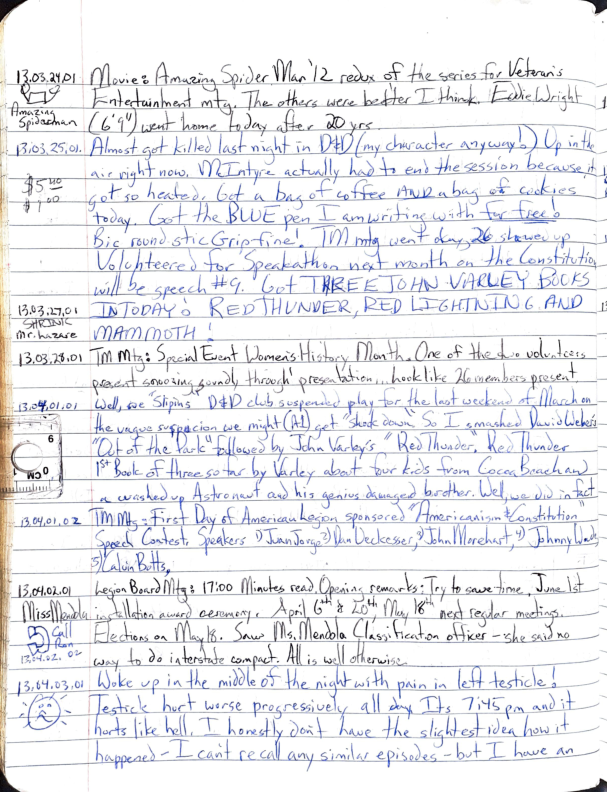 13.03.24.01 Movie: Amazing Spider Man '12 redux of the series for Veteran's
Amazing Spiderman Entertainment mtg. The others were better I think. Eddie Wright
(6'9") went home today after 20 yrs.
13.03.25.01. Almost got killed last night in D&D (my character anyway!) Up in the
air right now. McIntyre actually had to end the session because it
$5.00 got so heated. Got a bag of coffee AND a bag of cookies
$1.00 today. Got the BLUE pen I am writing with for free!
Bic round stic Grip fine! TM mtg went okay, 26 showed up
Volunteered for Speakathon next month on the Constitution
will be speech #9. Got THREE JOHN VARLEY BOOKS
13.03.27.01 IN TODAY: RED THUNDER, RED LIGHTNING, AND
SHRINK Mr. hazare MAMMOTH!
13.03.28.01 TM Mtg: Special Event Women's History Month. One of the two volunteers
present snoozing soundly through presentation... look like 26 members present
13.04.01.01 Well, we "Stipins" D&D club suspended play for the last weekend of March on
the vague suspicion we might (A1) get "shook down". So I smashed David Weber's
"Out of the Dark" followed by John Varley's "Red Thunder," Red Thunder
1st Book of three so far by Varley about four kids from Cocoa Beach and
a washed up Astronaut and his genius damaged brother. Well, we did in fact
13.04.01.02 TM Mtg: First Day of American Legion sponsored "Americanism & Constitution"
Speech Contest. Speakers 1) Juan Jorge 2) Dan Ueckesser, 3) John Morehart, 4) Johnny Wade,
5) Calvin Butts.
13.04.02.01 Legion Board Mtg: 17:00 Minutes read. Opening remarks: Try to save time, June 1st
Miss Mendola installation award ceremony. April 6th & 20th May 18th next regular meetings.
Call Mom Elections on May 18. Saw Ms. Mendola Classification officer - she said no
13.04.02.02 way to do interstate compact. All is well otherwise.
13.04.03.01 Woke up in the middle of the night with pain in left testicle!
Testicle hurt worse progressively all day. Its 7:45 pm and it
hurts like hell. I honestly don't have the slightest idea how it
happened - I can't recall any similar episodes - but I have an
6
0
CM